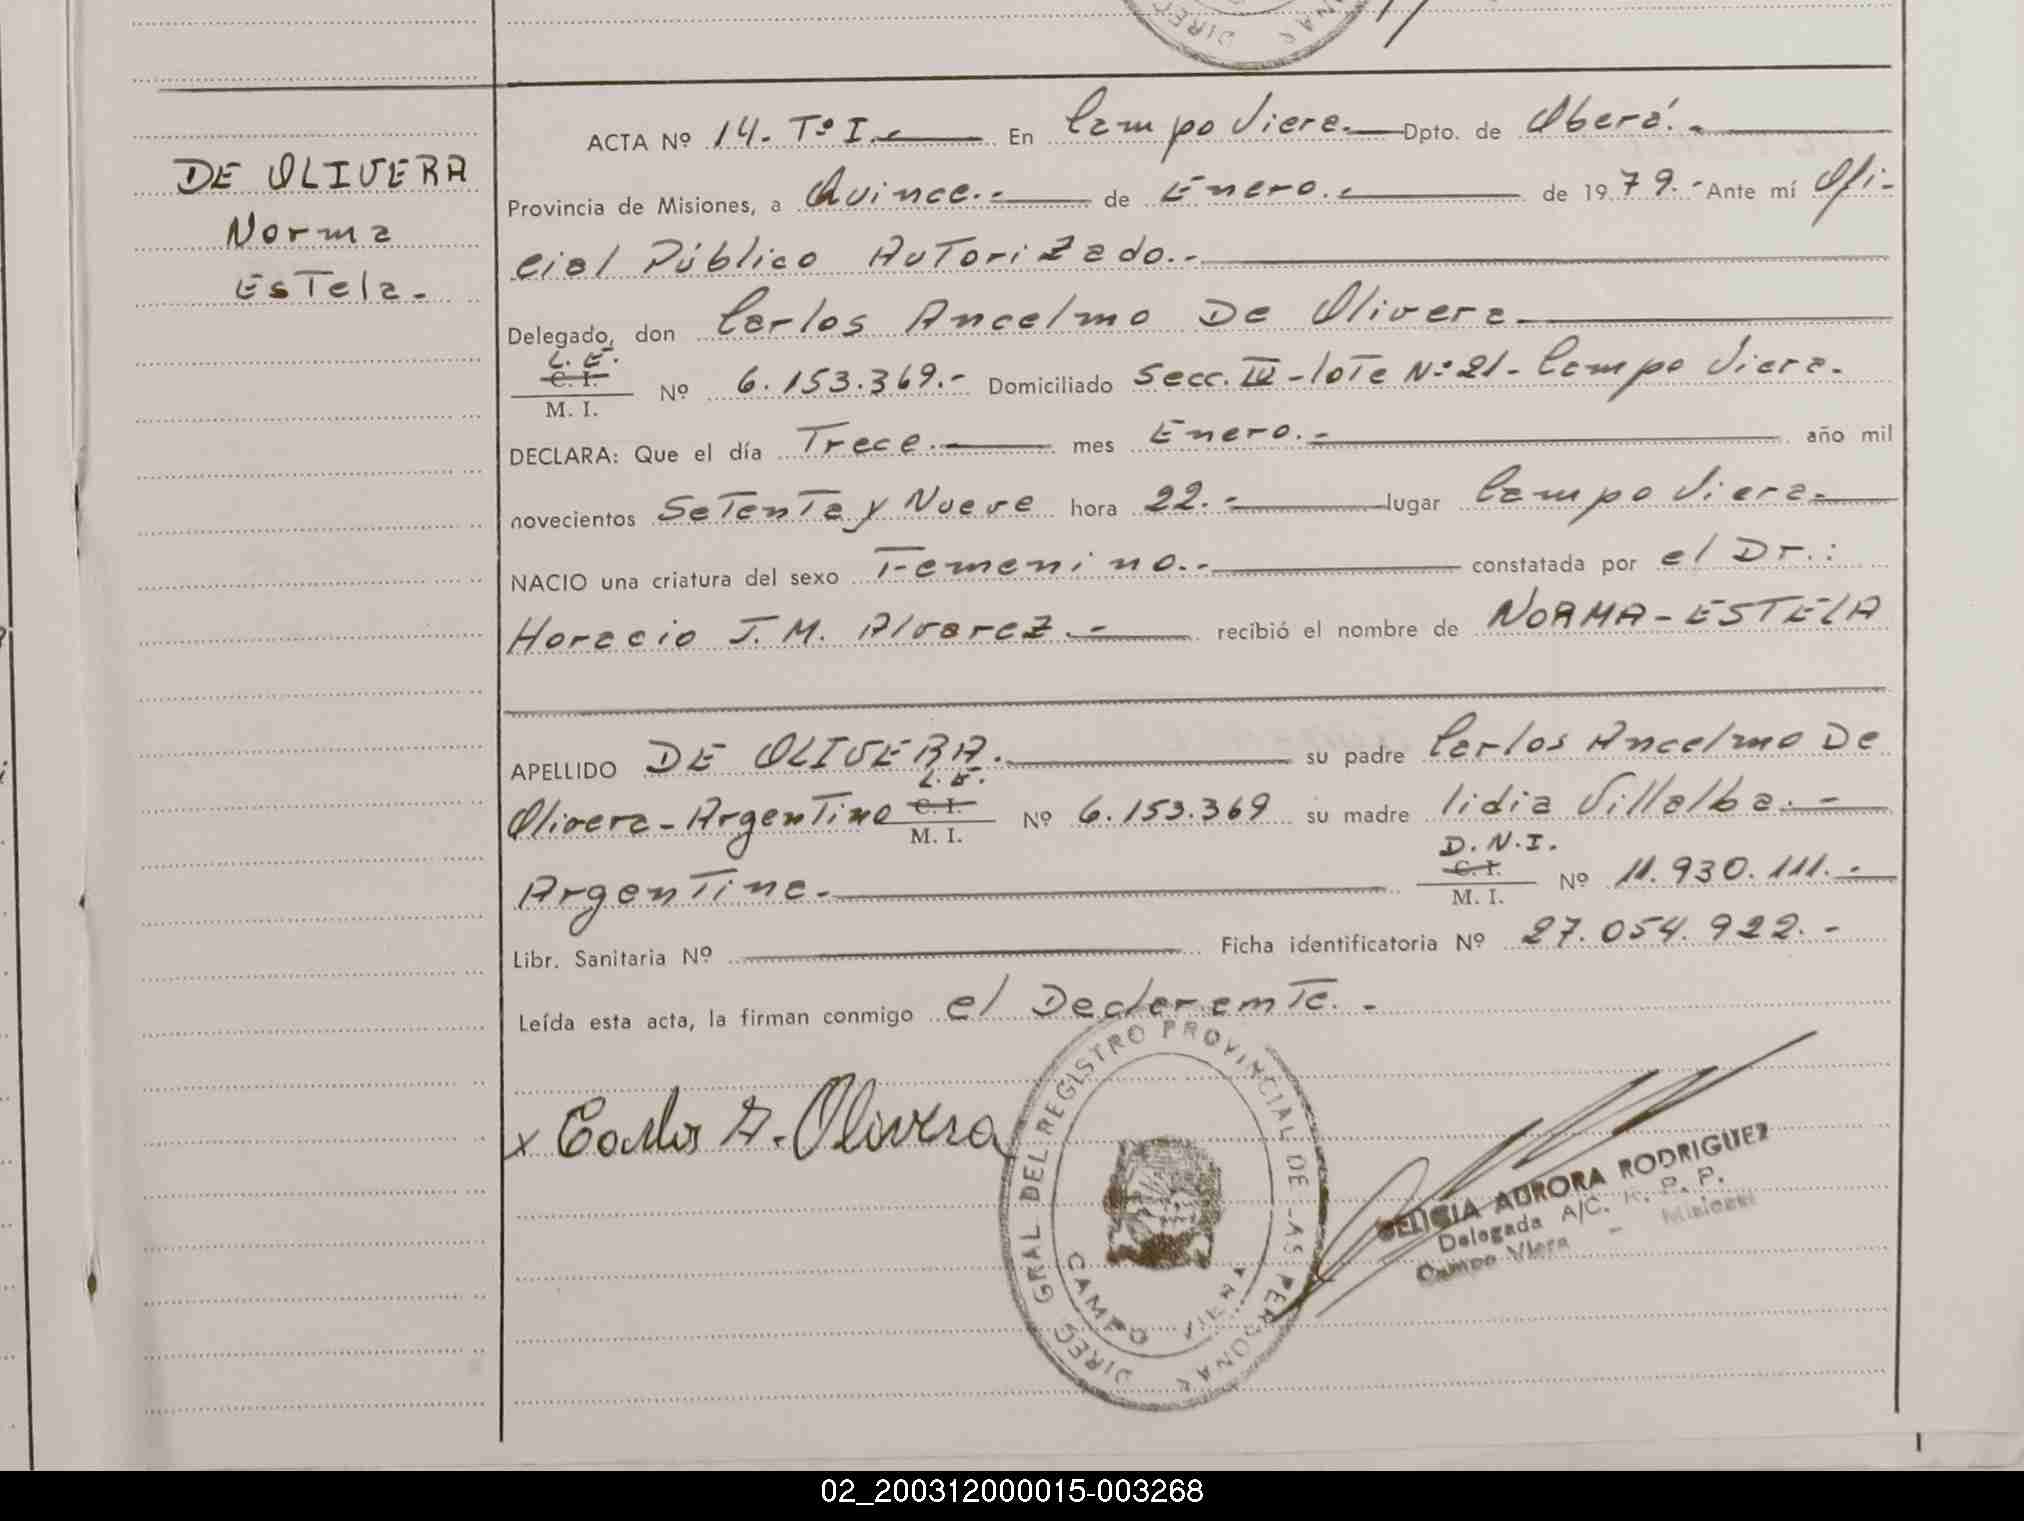 DIREC
ONAS
ACTA Nº 14. Tº I.- En Campo Viera.- Dpto. de Oberá.-
DE OLIVERA
Norma
Estela.-
Provincia de Misiones, a Quince.- de Enero.- de 1979.- Ante mí Ofi-
cial Público Autorizado.-
Delegado, don Carlos Ancelmo De Olivera.
L.E.
C. I.
M. I.
Nº 6.153.369.- Domiciliado Secc. IV - lote Nº 21 - Campo Viera.
DECLARA: Que el día Trece.- mes Enero.- año mil
novecientos Setenta y Nueve hora 22.- lugar Campo Viera.
NACIO una criatura del sexo Femenino.- constatada por el Dr.:
Horacio J. M. Alvarez.- recibió el nombre de NORMA-ESTELA
APELLIDO DE OLIVERA. su padre Carlos Ancelmo De
Olivera - Argentino L.E. C. I. M. I. Nº 6.153.369 su madre lidia Villalba.-
Argentina. D.N.I. C. I. M. I. Nº 11.930.111.-
Libr. Sanitaria Nº Ficha identificatoria Nº 27.054.922.-
Leída esta acta, la firman conmigo el Declaramte.-
x Carlos A. Olivera
DIREC GRAL DEL REGISTRO PROVINCIAL DE LAS PERSONAS
CAMPO VIERA
AURORA RODRIGUEZ
Delegada A/C. R. P. P.
Campo Viera - Misiones
02_200312000015-003268